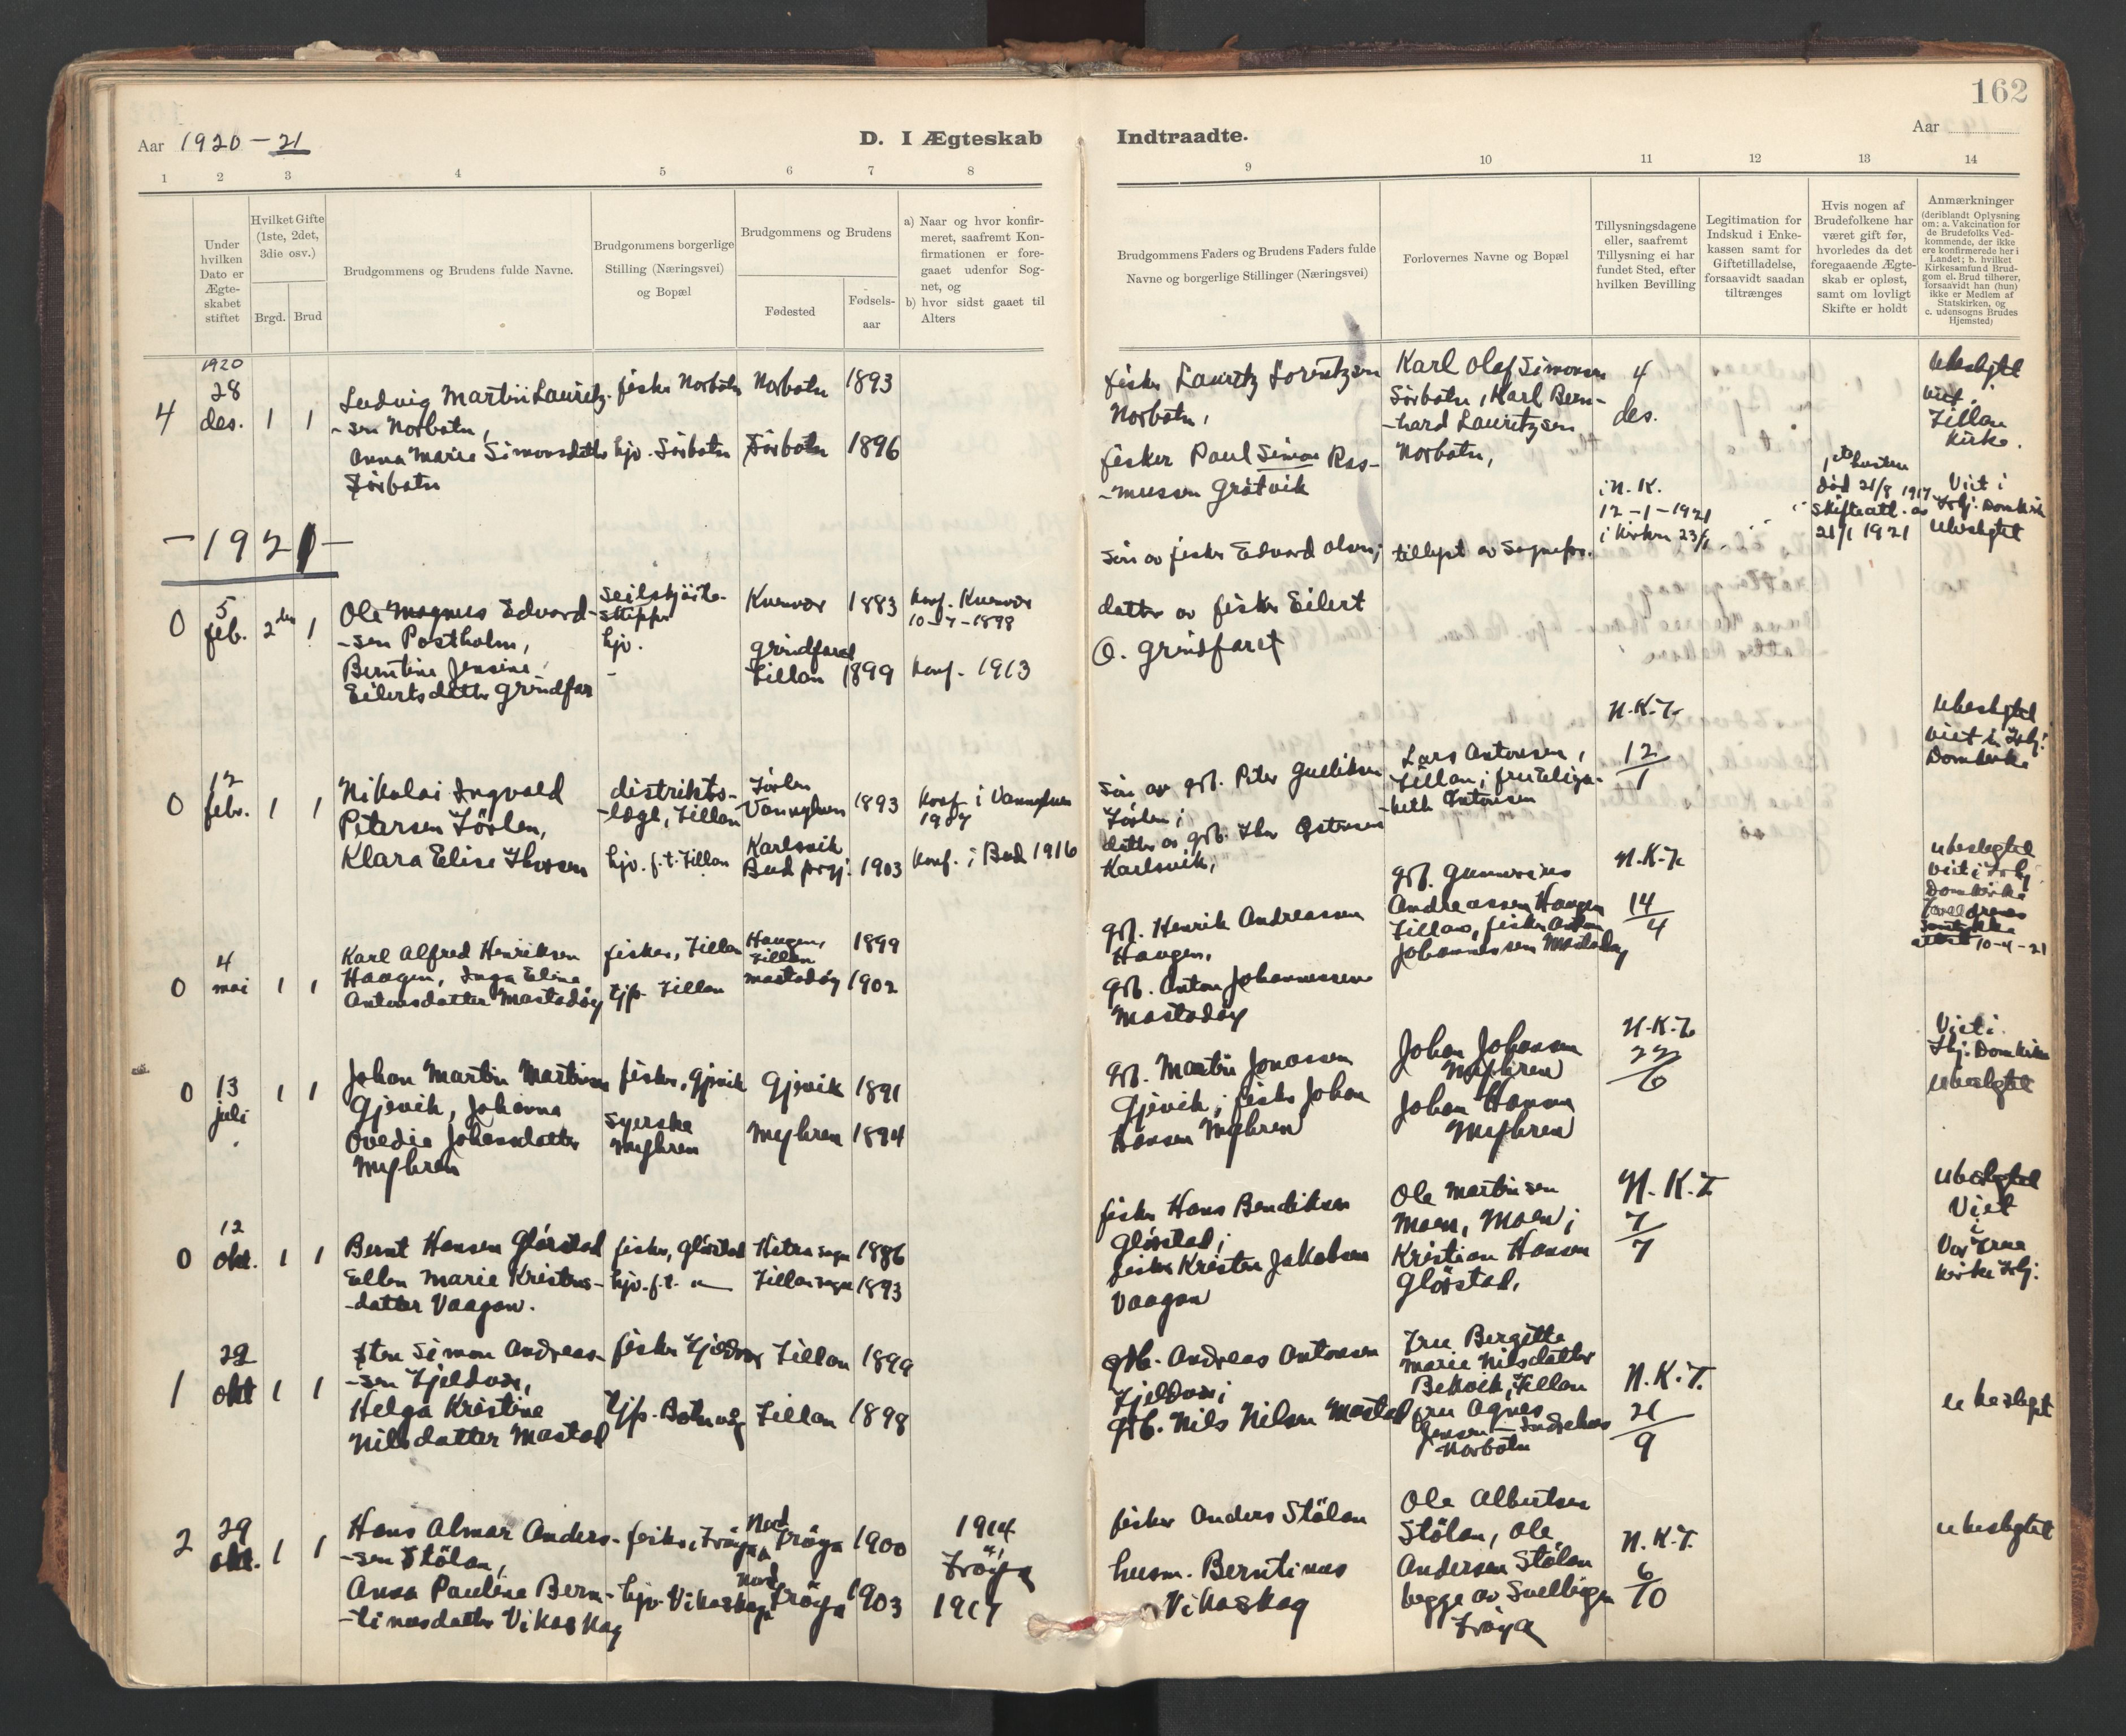 162
Aar 1920-21
D. I Ægteskab
Indtraadte.
Aar
1 2 3 4 5 6 7 8 9 10 11 12 13 14
Under hvilken Dato er Ægte-skabet stiftet
Hvilket Gifte (1ste, 2det, 3die osv.)
Brgd. Brud
Brudgommens og Brudens fulde Navne.
Brudgommens borgerlige
Stilling (Næringsvei)
og Bopæl
Brudgommens og Brudens
Fødested
Fødsels-aar
a) Naar og hvor konfir-
meret, saafremt Kon-
firmationen er fore-
gaaet udenfor Sog-
net, og
b) hvor sidst gaaet til
Alters
Brudgommens Faders og Brudens Faders fulde
Navne og borgerlige Stillinger (Næringsvei)
Forlovernes Navne og Bopæl
Tillysningsdagene
eller, saafremt
Tillysning ei har
fundet Sted, efter
hvilken Bevilling
Legitimation for
Indskud i Enke-
kassen samt for
Giftetilladelse,
forsaavidt saadan
tiltrænges
Hvis nogen af
Brudefolkene har
været gift før,
hvorledes da det
foregaaende Ægte-
skab er opløst,
samt om lovligt
Skifte er holdt
Anmærkninger
(deriblandt Oplysning
om: a. Vakcination for
de Brudefolks Ved-
kommende, der ikke
ere konfirmerede her i
Landet; b. hvilket
Kirkesamfund Brud-
gom el. Brud tilhører,
forsaavidt han (hun)
ikke er Medlem af
Statskirken, og
c. udensogns Brudes
Hjemsted)
1920
4 28 des. 1 1
Ludvig Martin Lauritz-
-sen Norbotn,
Anna Marie Simonsdatter
Sörbotn
fisker Norbotn
hjv. Sörbotn
Norbotn 1893
Sörbotn 1896
fisker Lauritz Lorentzen
Norbotn,
fisker Paul Simon Ras-
-mussen Grötvik
Karl Olaf Simonsen
Sörbotn, Karl Bern-
-hard Lauritzsen
Norbotn,
4
des.
ubeslegtet
viet.
Fillan
Kirke.
-1921-
0 5 feb. 2den 1
Ole Magnus Edvard-
-sen Postholm,
Berntine Jensine
Eilertsdatter Grindfar
seilskjöite-
skipper
hjv.
-
Kvenvær 1883
Grindfaret
Fillan 1899
konf. Kvenvær
10-7-1898
konf. 1913
sön av fisker Edvard Olsen;
datter av fisker Eilert
O. Grindfaret
tillyst av Sognepr.
i N. K.
12-1-1921
i Kirken 23/1
död 21/8 1917
Skifteatt. av
21/1 1921
Viet i
Trhj. Domkirke
ubeslegtet
0 12 febr. 1 1
Nikolai Ingvald
Petersen Törlen,
Klara Elise Thorsen
distrikts-
-læge, Fillan
hjv. f.t. Fillan
Törlen
Vannylven 1893
Karlsvik
Bud prgj. 1903
Konf. i Vannylven
1907
Konf. i Bud 1916
Sön av gbr. Peter Gulliksen
Törlen;
datter av gbr. Thor Ostensen
Karlsvik,
Lars Antonsen,
Fillan; fru Elisa-
-beth Antonsen
N.K.T.
12
1
ubeslegtet
viet i Trhj.
Domkirke
0 4 mai 1 1
Karl Alfred Henriksen
Haugen, Inga Eline
Antonsdatter Mastadöy
fisker, Fillan
tjp. Fillan
Haugen,
Fillan 1899
Mastadöy 1902
gbr. Henrik Andreassen
Haugen,
gbr. Anton Johannessen
Mastadöy
gbr. Gunnerius
Andreassen Haugen
Fillan, fisker Anton
Johannessen Mastadöy
N.K.T.
14
4
ubeslegtet
viet i Trhj
Domkirke
10-4-21
0 13 juli 1 1
Johan Martin Martinsen
Gjevik, Johanna
Ovedie Johansdatter
Myhren
fisker, Gjevik
syerske
Myhren
Gjevik 1891
Myhren 1894
gbr. Martin Jonassen
Gjevik; fisker Johan
Hansen Myhren
Johan Johansen
Myhren
Johan Hansen
Myhren
N.K.T.
22
6
Viet i
Thj. Domkirke
ubeslegtet
0 12 okt. 1 1
Bernt Hansen Glörstad
Ellen Marie Kristens-
-datter Vaagan.
fisker, Glörstad
hjv. f.t. "
Hitra sogn 1886
Fillan sogn 1893
fisker Hans Bendiksen
Glörstad;
fisker Kristen Jakobsen
Vaagan
Ole Martinsen
Moen, Moen;
Kristian Hansen
Glörstad,
N.K.T.
7
7
ubeslegtet
Viet
i
Vor Frue
kirke Trhj.
1 22 okt 1 1
Sten Simon Andreas-
-sen Fjeldvær,
Helga Kristine
Nilsdatter Mastad
fisker Fjeldvær
tjp. Botnvåg
Fillan 1899
Fillan 1898
gbr. Andreas Antonsen
Fjeldvær;
gbr. Nils Nilsen Mastad
Fru Bergitte
Marie Nilsdatter
Bekvik, Fillan
fru Agnes
Jensen
Norbotn
N.K.T.
21
9
ubeslegtet
2 29 okt. 1 1
Hans Almar Anders-
-sen Stölan,
Anna Pauline Bern-
-tinusdatter Vikaskag
fisker, Fröya
hjv. Vikaskag
Nord
Fröya 1900
Nord
Fröya 1903
1914
Fröya
1917
fisker Anders Stölan
husm. Berntinus
Vikaskag
Ole Albertsen
Stölan, Ole
Andersen Stölan
begge av Svellingen
Fröya
N.K.T.
6
10
ubeslegtet